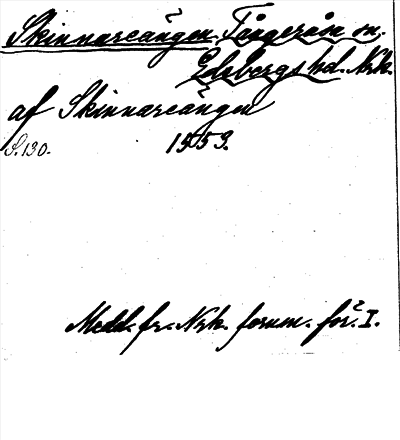 Skinnareängen. Tångeråsa sn.
Edsbergs hd. Nrk.
af Skinnareängen
S. 130. 1553.
Medd. fr. Nrk. fornm. för. I.